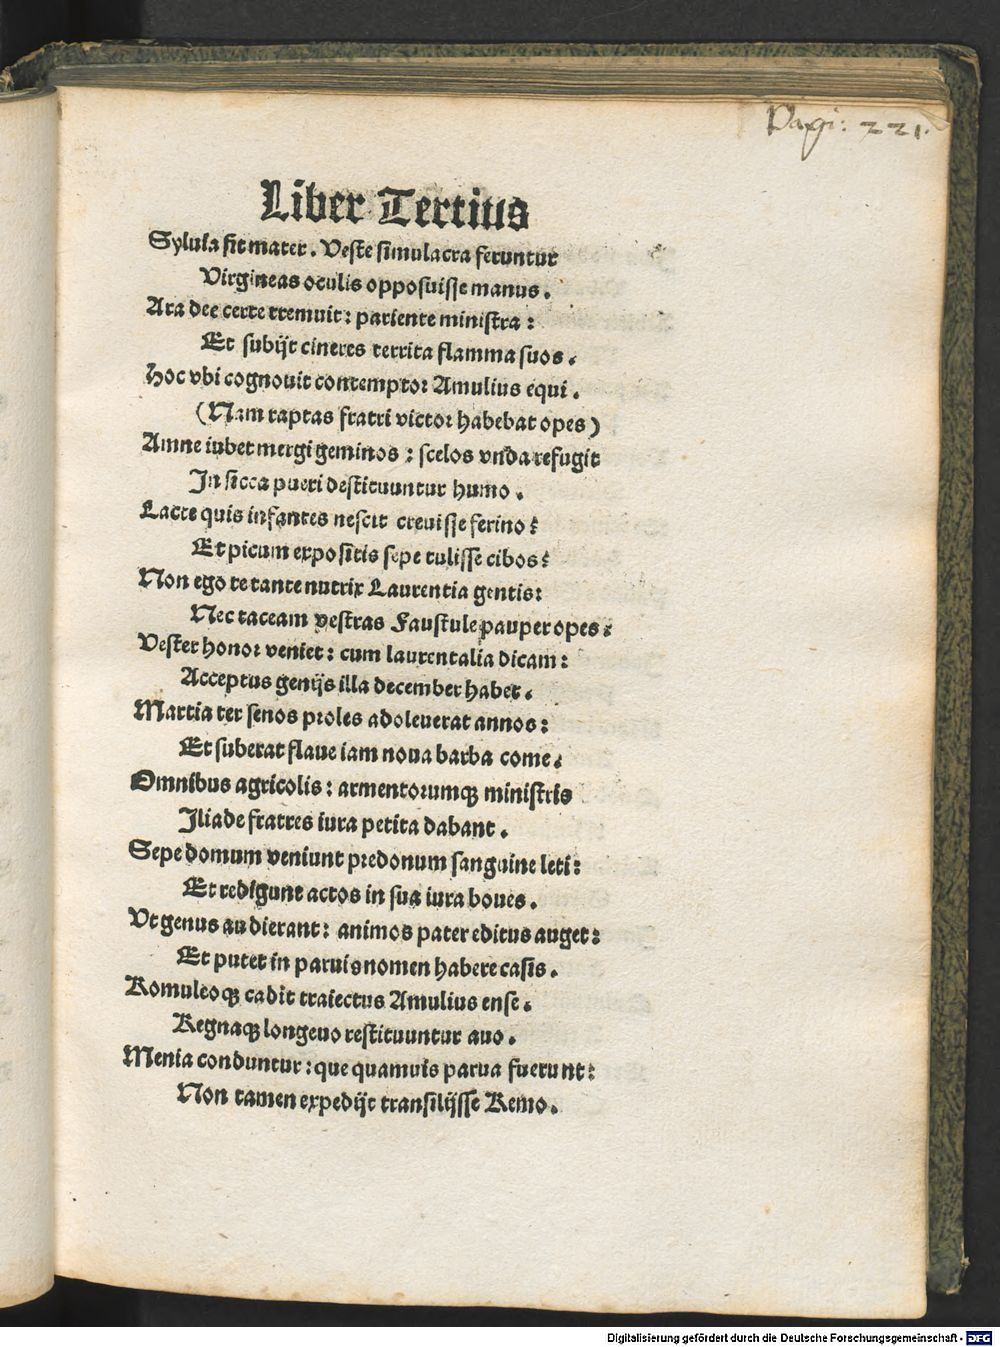 Pagi: 221.
Liber Tertius
Syluia fit mater. Veste simulacra feruntur
Virgineas oculis opposuisse manus.
Ara dee certe tremuit: pariente ministra:
Et subijt cineres territa flamma suos.
Hoc vbi cognouit contemptor Amulius equi.
(Nam raptas fratri victor habebat opes)
Amne iubet mergi geminos: scelos vnda refugit
In sicca pueri destituuntur humo.
Lacte quis infantes nescit creuisse ferino?
Et picum expositis sepe tulisse cibos?
Non ego te tante nutrix Laurentia gentis:
Nec taceam vestras Faustule pauper opes.
Vester honor veniet: cum laurentalia dicam:
Acceptus genijs illa december habet.
Martia ter senos proles adoleuerat annos:
Et suberat flaue iam noua barba come.
Omnibus agricolis: armentorumq; ministris
Iliade fratres iura petita dabant.
Sepe domum veniunt predonum sanguine leti:
Et redigunt actos in sua iura boues.
Vt genus audierant: animos pater editus auget:
Et putet in paruis nomen habere casis.
Romuleoq; cadit traiectus Amulius ense.
Regnaq; longeuo restituuntur auo.
Menia conduntur: que quamuis parua fuerunt:
Non tamen expedijt transilijsse Remo.
Digitalisierung gefördert durch die Deutsche Forschungsgemeinschaft - DFG